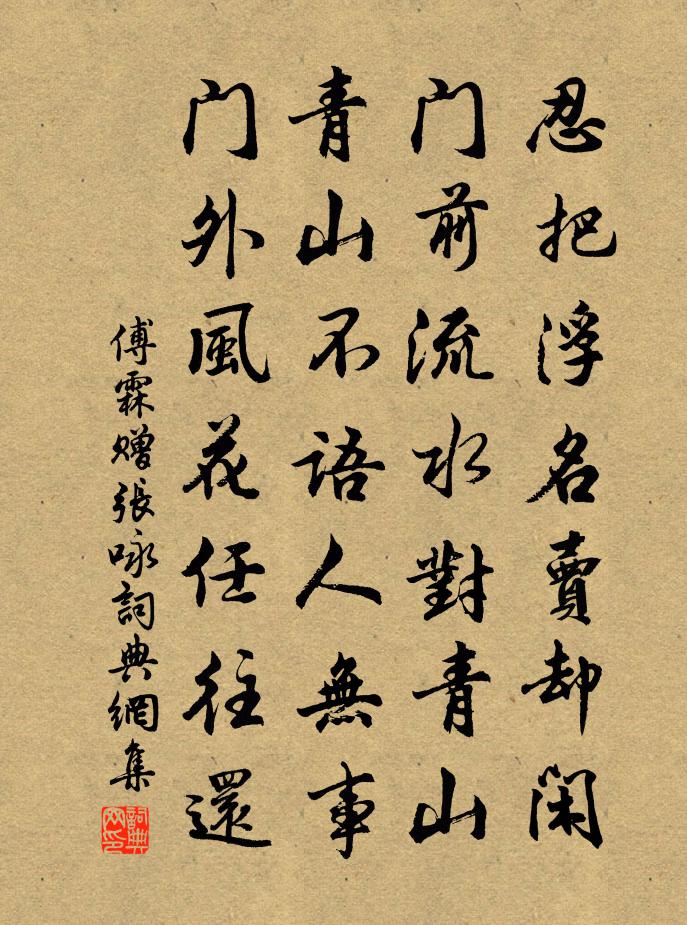 忍把浮名賣却闲
门前流水對青山
青山不語人無事
门外風花任往還
傅霖赠張咏詞典網集
詞典网印